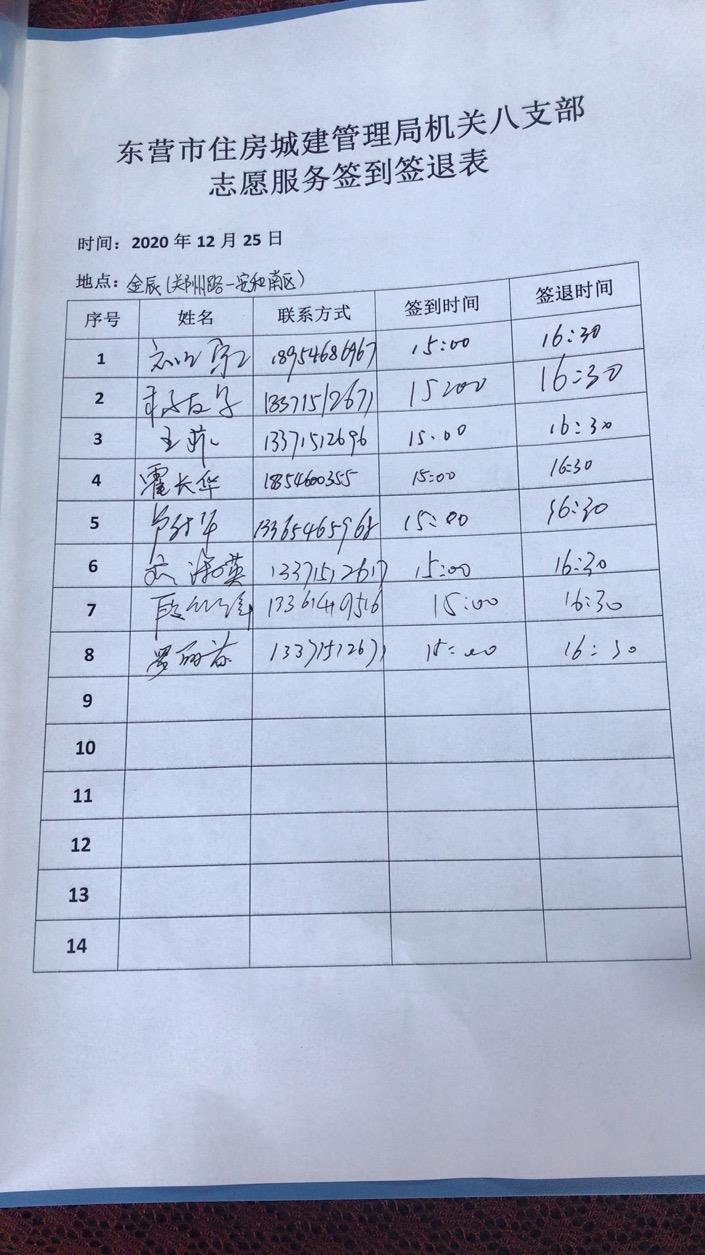 东营市住房城建管理局机关八支部
志愿服务签到签退表
时间：2020 年 12 月 25 日
地点：金辰（郑州路—安和南区）
序号 姓名 联系方式 签到时间 签退时间
1 18954686967 15:00 16:30
2 13371512671 15:00 16:30
3 王 13371512696 15:00 16:30
4 霍长华 18854600355 15:00 16:30
5 13365465968 15:00 16:30
6 英 13371512617 15:00 16:30
7 段 13361419516 15:00 16:30
8 罗丽 13371512671 15:00 16:30
9
10
11
12
13
14